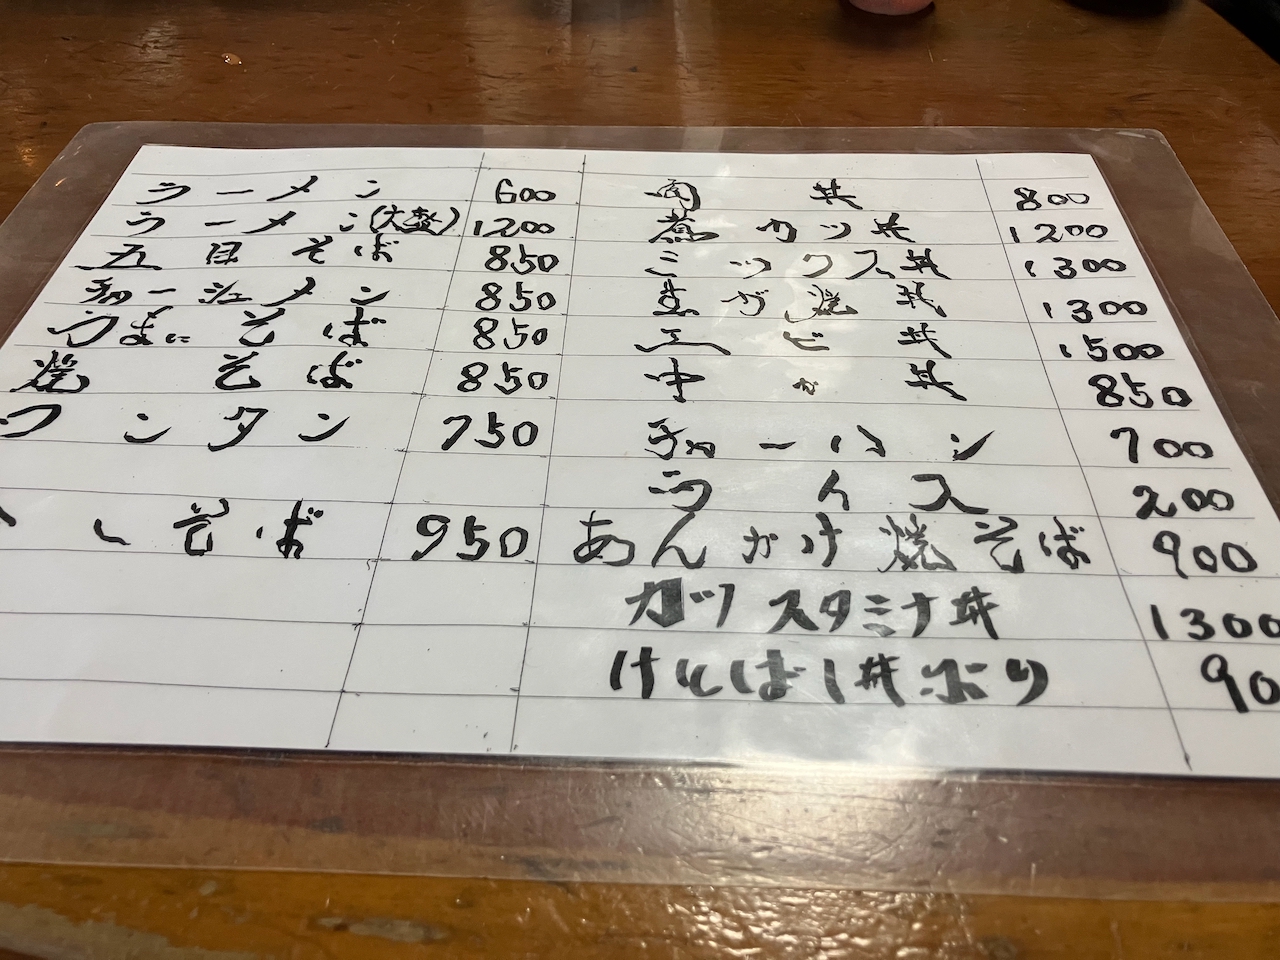 ラーメン 600
ラーメン(大盛) 1200
五目そば 850
チャーシューメン 850
うまにそば 850
焼そば 850
ワンタン 750
しそば 950
肉丼 800
カツ丼 1200
ミックス丼 1300
生が焼丼 1300
エビ丼 1500
中か丼 850
チャーハン 700
ライス 200
あんかけ焼そば 900
カツスタミナ丼 1300
けんばし丼ぶり 90